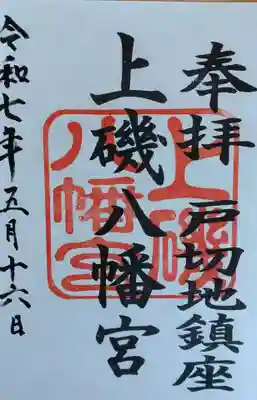 奉拝 戸切地鎮座
上磯八幡宮
令和七年五月十六日
上磯八幡宮